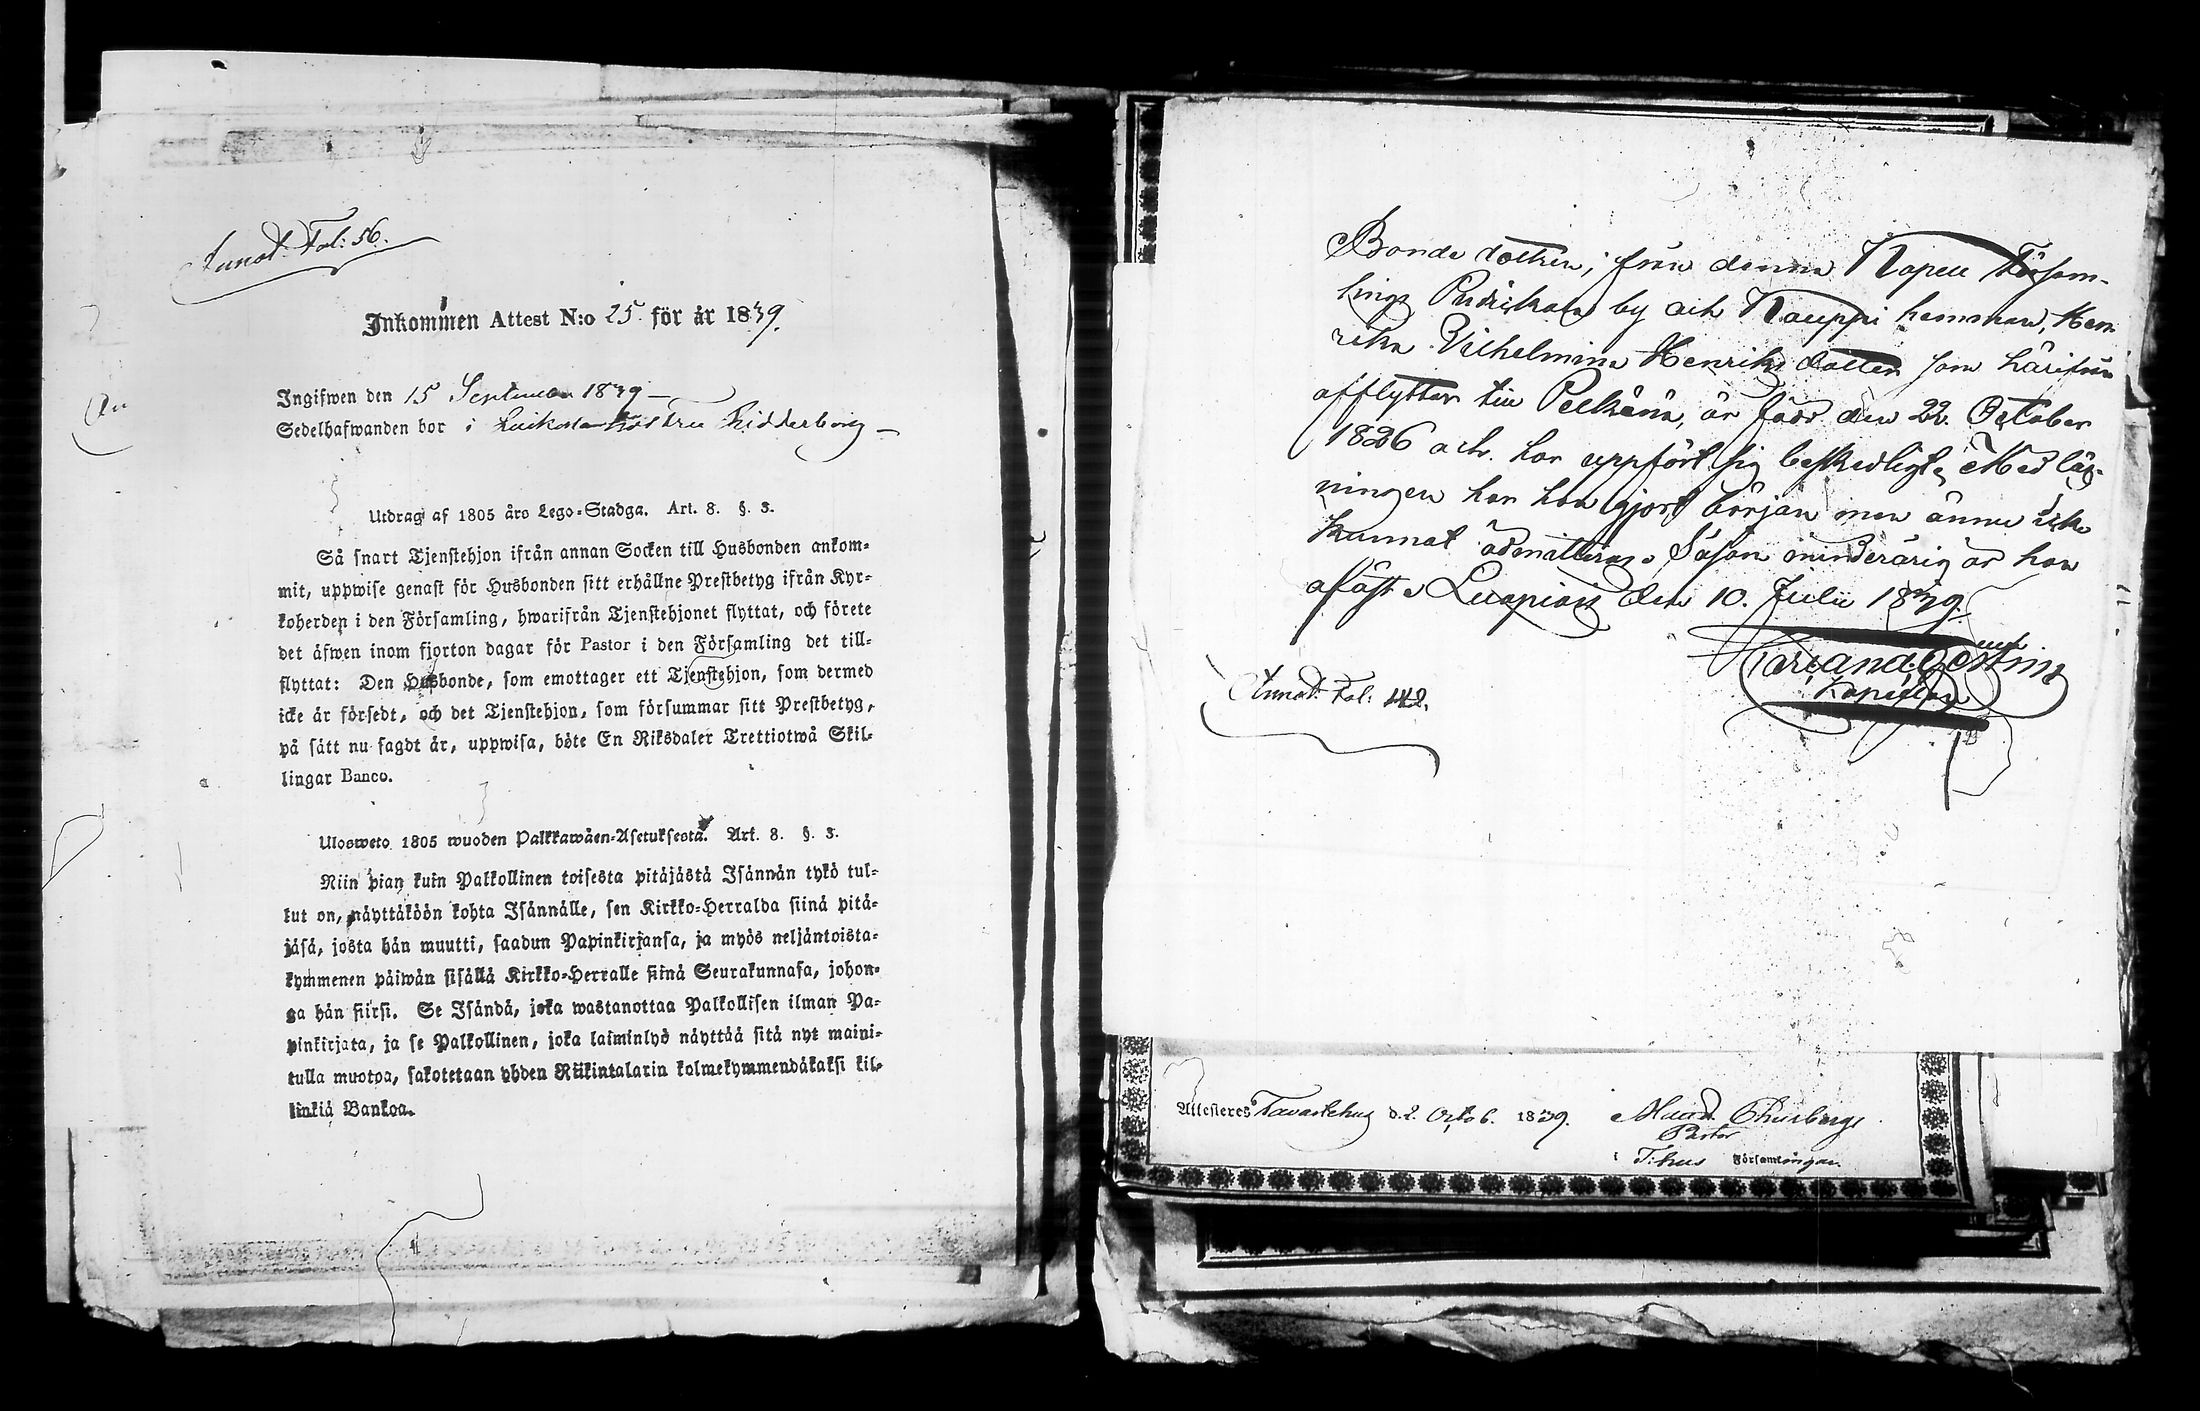 Annot. Fol: 56.
Inkommen Attest N:o 25. för år 1839.
Ingifwen den 15 September 1839 –
Sedelhafwanden bor i Ridderborg –
Utdrag af 1805 års Lego-Stadga. Art. 8. §. 3.
Så snart Tjenstehjon ifrån annan Socken till Husbonden ankom-
mit, uppwise genast för Husbonden sitt erhållne Prestbetyg ifrån Kyr-
koherden i den Församling, hwarifrån Tjenstehjonet flyttat, och förete
det äfwen inom fjorton dagar för Pastor i den Församling det till-
flyttat: Den Husbonde, som emottager ett Tjenstehjon, som dermed
icke är försedt, och det Tjenstehjon, som försummar sitt Prestbetyg,
på sätt nu sagdt är, uppwisa, böte En Riksdaler Trettiotwå Skil-
lingar Banco.
Ulosweto 1805 wuoden Palkkawäen-Asetuksesta. Art. 8. §. 3.
Niin pian kuin Palkollinen toisesta pitäjästä Isännän tykö tul-
lut on, näyttäköön kohta Isännälle, sen Kirkko-Herralda siinä pitä-
jäsä, josta hän muutti, saadun Papinkirjansa, ja myös neljäntoista-
kymmenen päiwän sisällä Kirkko-Herralle siinä Seurakunnasa, johon-
ga hän siirsi. Se Isändä, joka wastanottaa Palkollisen ilman Pa-
pinkirjata, ja se Palkollinen, joka laiminlyö näyttää sitä nyt maini-
tulla muotoa, sakotetaan yhden Riikintalarin kolmekymmendäkaksi kil-
linkiä Bankoa.
Bonde dottren, från denna Kapell Försam-
lings by och Kauppi hemman, Hen-
rika Vilhelmina Henriks dotter som härifrån
afflyttar till Pelkäne, är född den 22. October
1826 och har uppfört sig beskedligt. Med läs-
ningen har hon gjort början men ännu icke
kunnat admitteras. Såsom minderårig är hon
aflöst. Luopiois den 10. Julii 1839.
Kapellan
Annot: Fol: 142.
Attesteres Tavastehus d. 2. Octob. 1839. Thurberg
Pastor
i T:hus Församlingar.